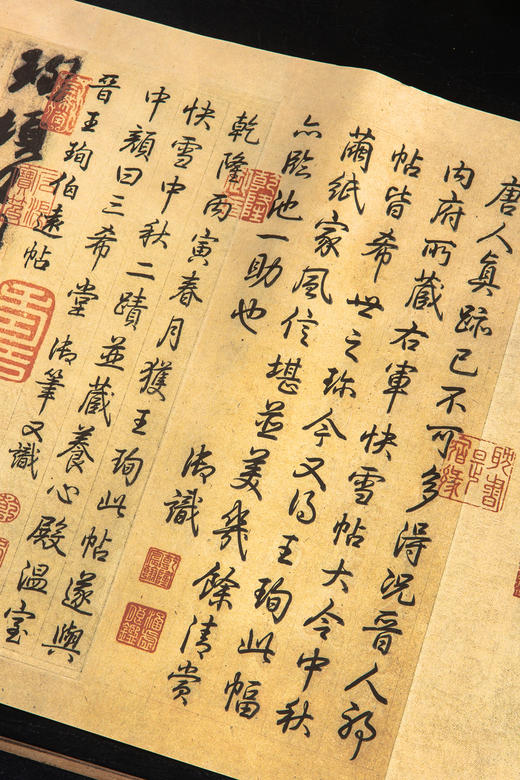 唐人真跡已不可多得況晉人耶
內府所藏右軍快雪帖大令中秋
帖皆希世之珍今又得王珣此幅
繭紙家風信堪並美幾餘清賞
亦臨池一助也 御識
乾隆丙寅春月獲王珣此帖遂與
快雪中秋二蹟並藏養心殿溫室
中顏曰三希堂 御筆又識
晉王珣伯遠帖
珣頓
乾隆